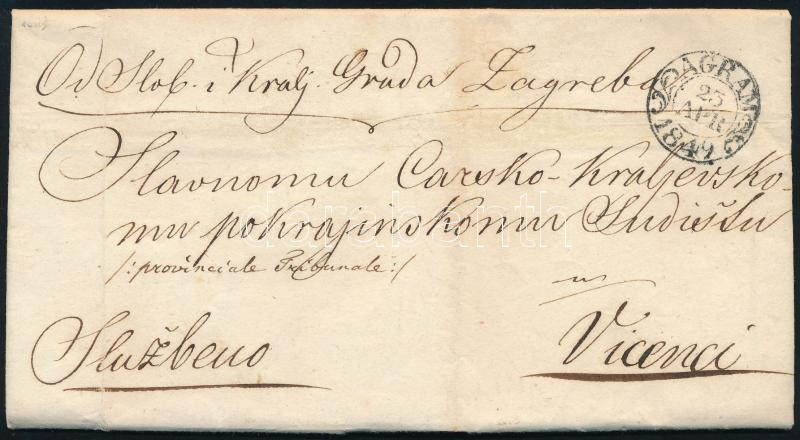 Od Slob. i Kralj. Grada Zagreba
AGRAM
25
APR
1849
Slavnomu Carsko-Kraljevsko-
mu pokrajinskomu Sudištu
/: provinciale Tribunale :/
u
Službeno
Vicenci
darabanth